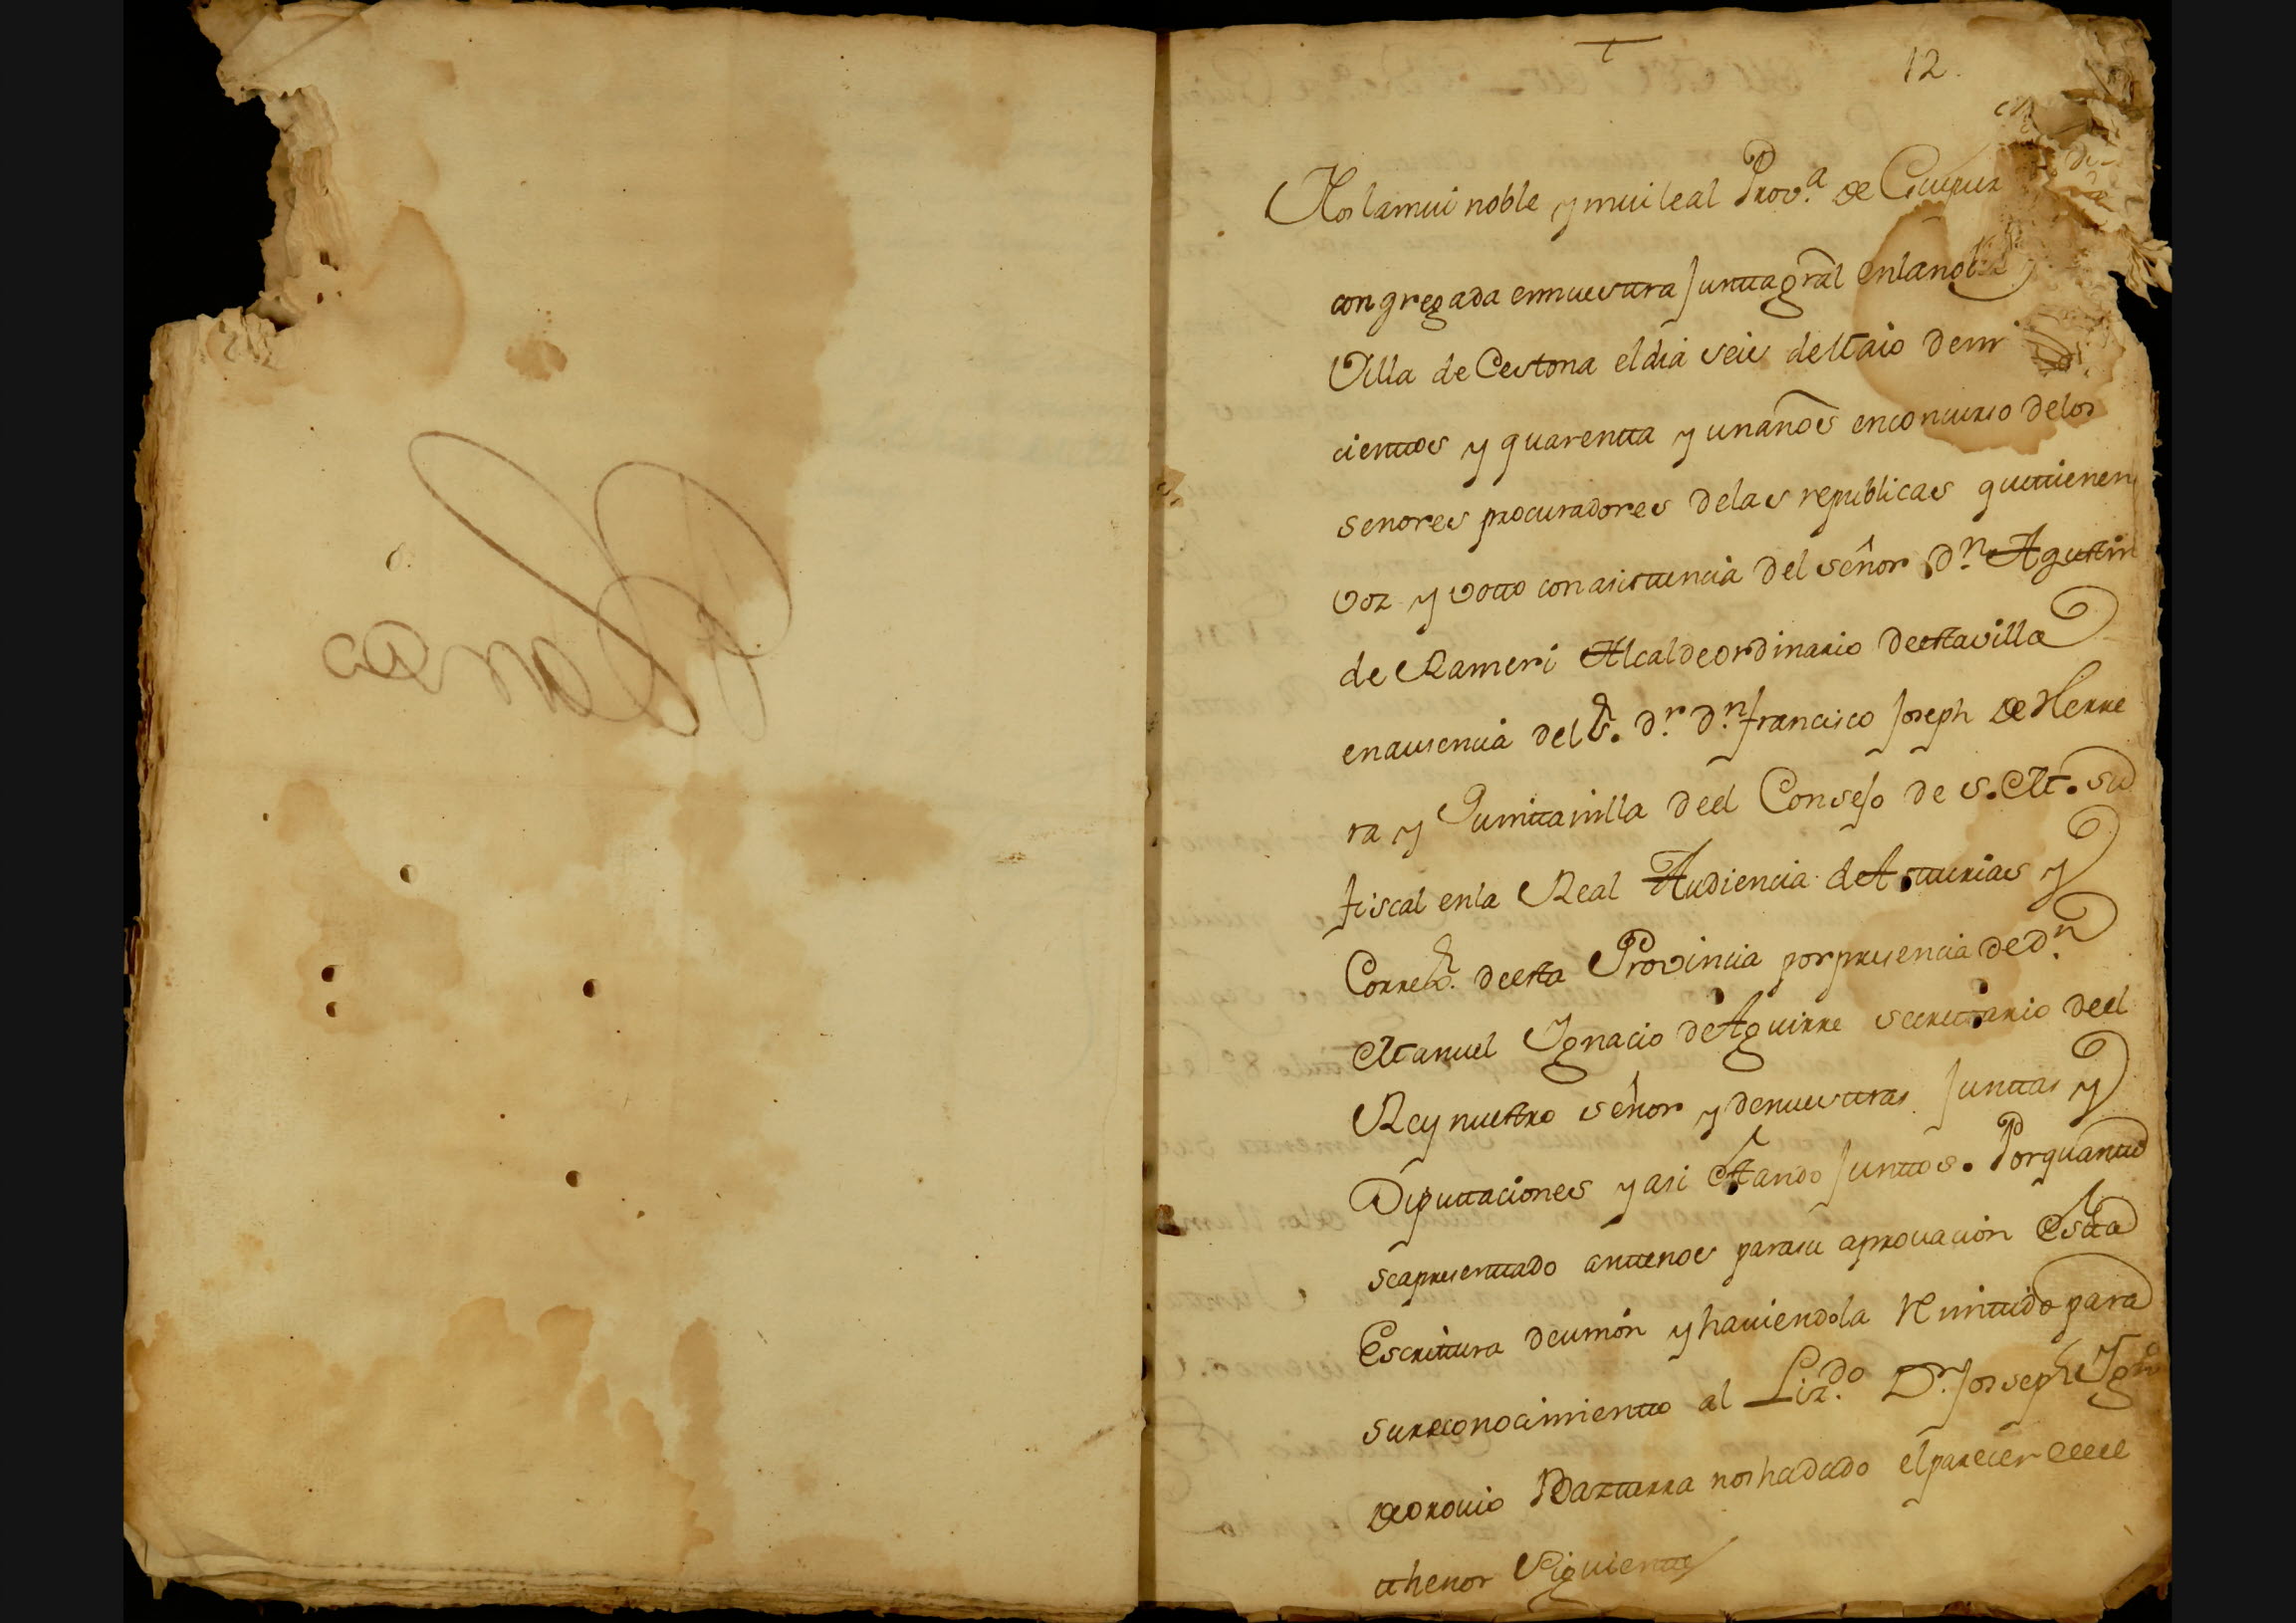 12.
Nos la mui noble y mui leal Prov.ª de Guipuz
congregada en nuestra Junta grãl en la nob
Villa de Cestona el dia seis de Maio de m
cientos y quarenta y un años en concurso de los
señores procuradores de las republicas que tienen
voz y votto con asistencia del señor D.n Agustin
de Rameri Alcalde ordinario de esta villa
en ausencia del S.r D.r D.n francisco Joseph de Herre
ra y Quinttanilla de el Consejo de S. M. su
fiscal en la Real Audiencia de Asturias y
Correx.or de esta Provincia por presencia de D.n
Manuel Ignacio de Aguirre secretario de el
Rey nuestro señor y de nuestras Juntas y
Diputtaciones y asi estando Junttos. Por quantto
se a presenttado ante nos para su aprovacion esta
Escrittura de union y haviendola Remittido para
su reconocimientto al Liz.do D.n Joseph Ign.º
de orovio Bazterra nos ha dado el parecer
thenor Siguiente